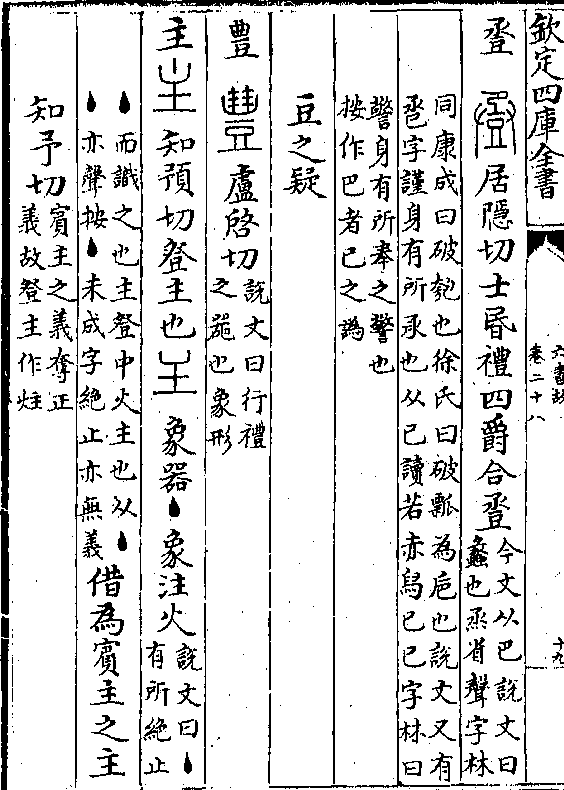 欽定四庫全書
六書故
卷二十八
十九
𧯷 居隱切士昏禮四爵合𧯷
今文从巴說文曰
蠡也烝省聲字林
同康成曰破匏也徐氏曰破瓢為巵也說文又有
卺字謹身有所承也从己讀若赤舄己己字林曰
警身有所奉之警也
按作巴者己之譌
豆之疑
豊 盧啓切
說文曰行禮
之器也象形
主 知預切登主也 象器丶象注火
說文曰丶
有所絶止
丶而識之也主登中火主也从丶
丶亦聲按丶未成字絶止亦無義
借為賓主之主
知予切
賓主之義奪正
義故登主作炷